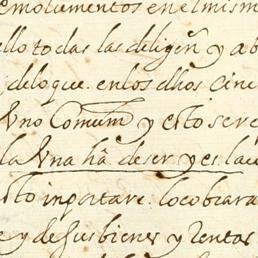 emolumentos en el mism
ello todas las diligen̄ y ab
deloque. enlos dhos cinc
Vno Comum y esto sere
la Vna ha deser y es. la
sto inportare. lo cobrara
e y de sus bienes y Rentas